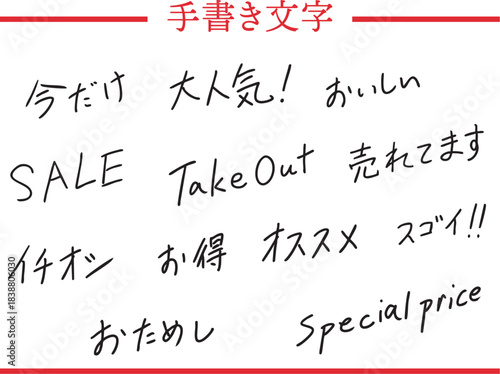 手書き文字
今だけ 大人気! おいしい
SALE Take Out 売れてます
イチオシ お得 オススメ スゴイ!!
おためし Special price
Adobe Stock | #1838806030